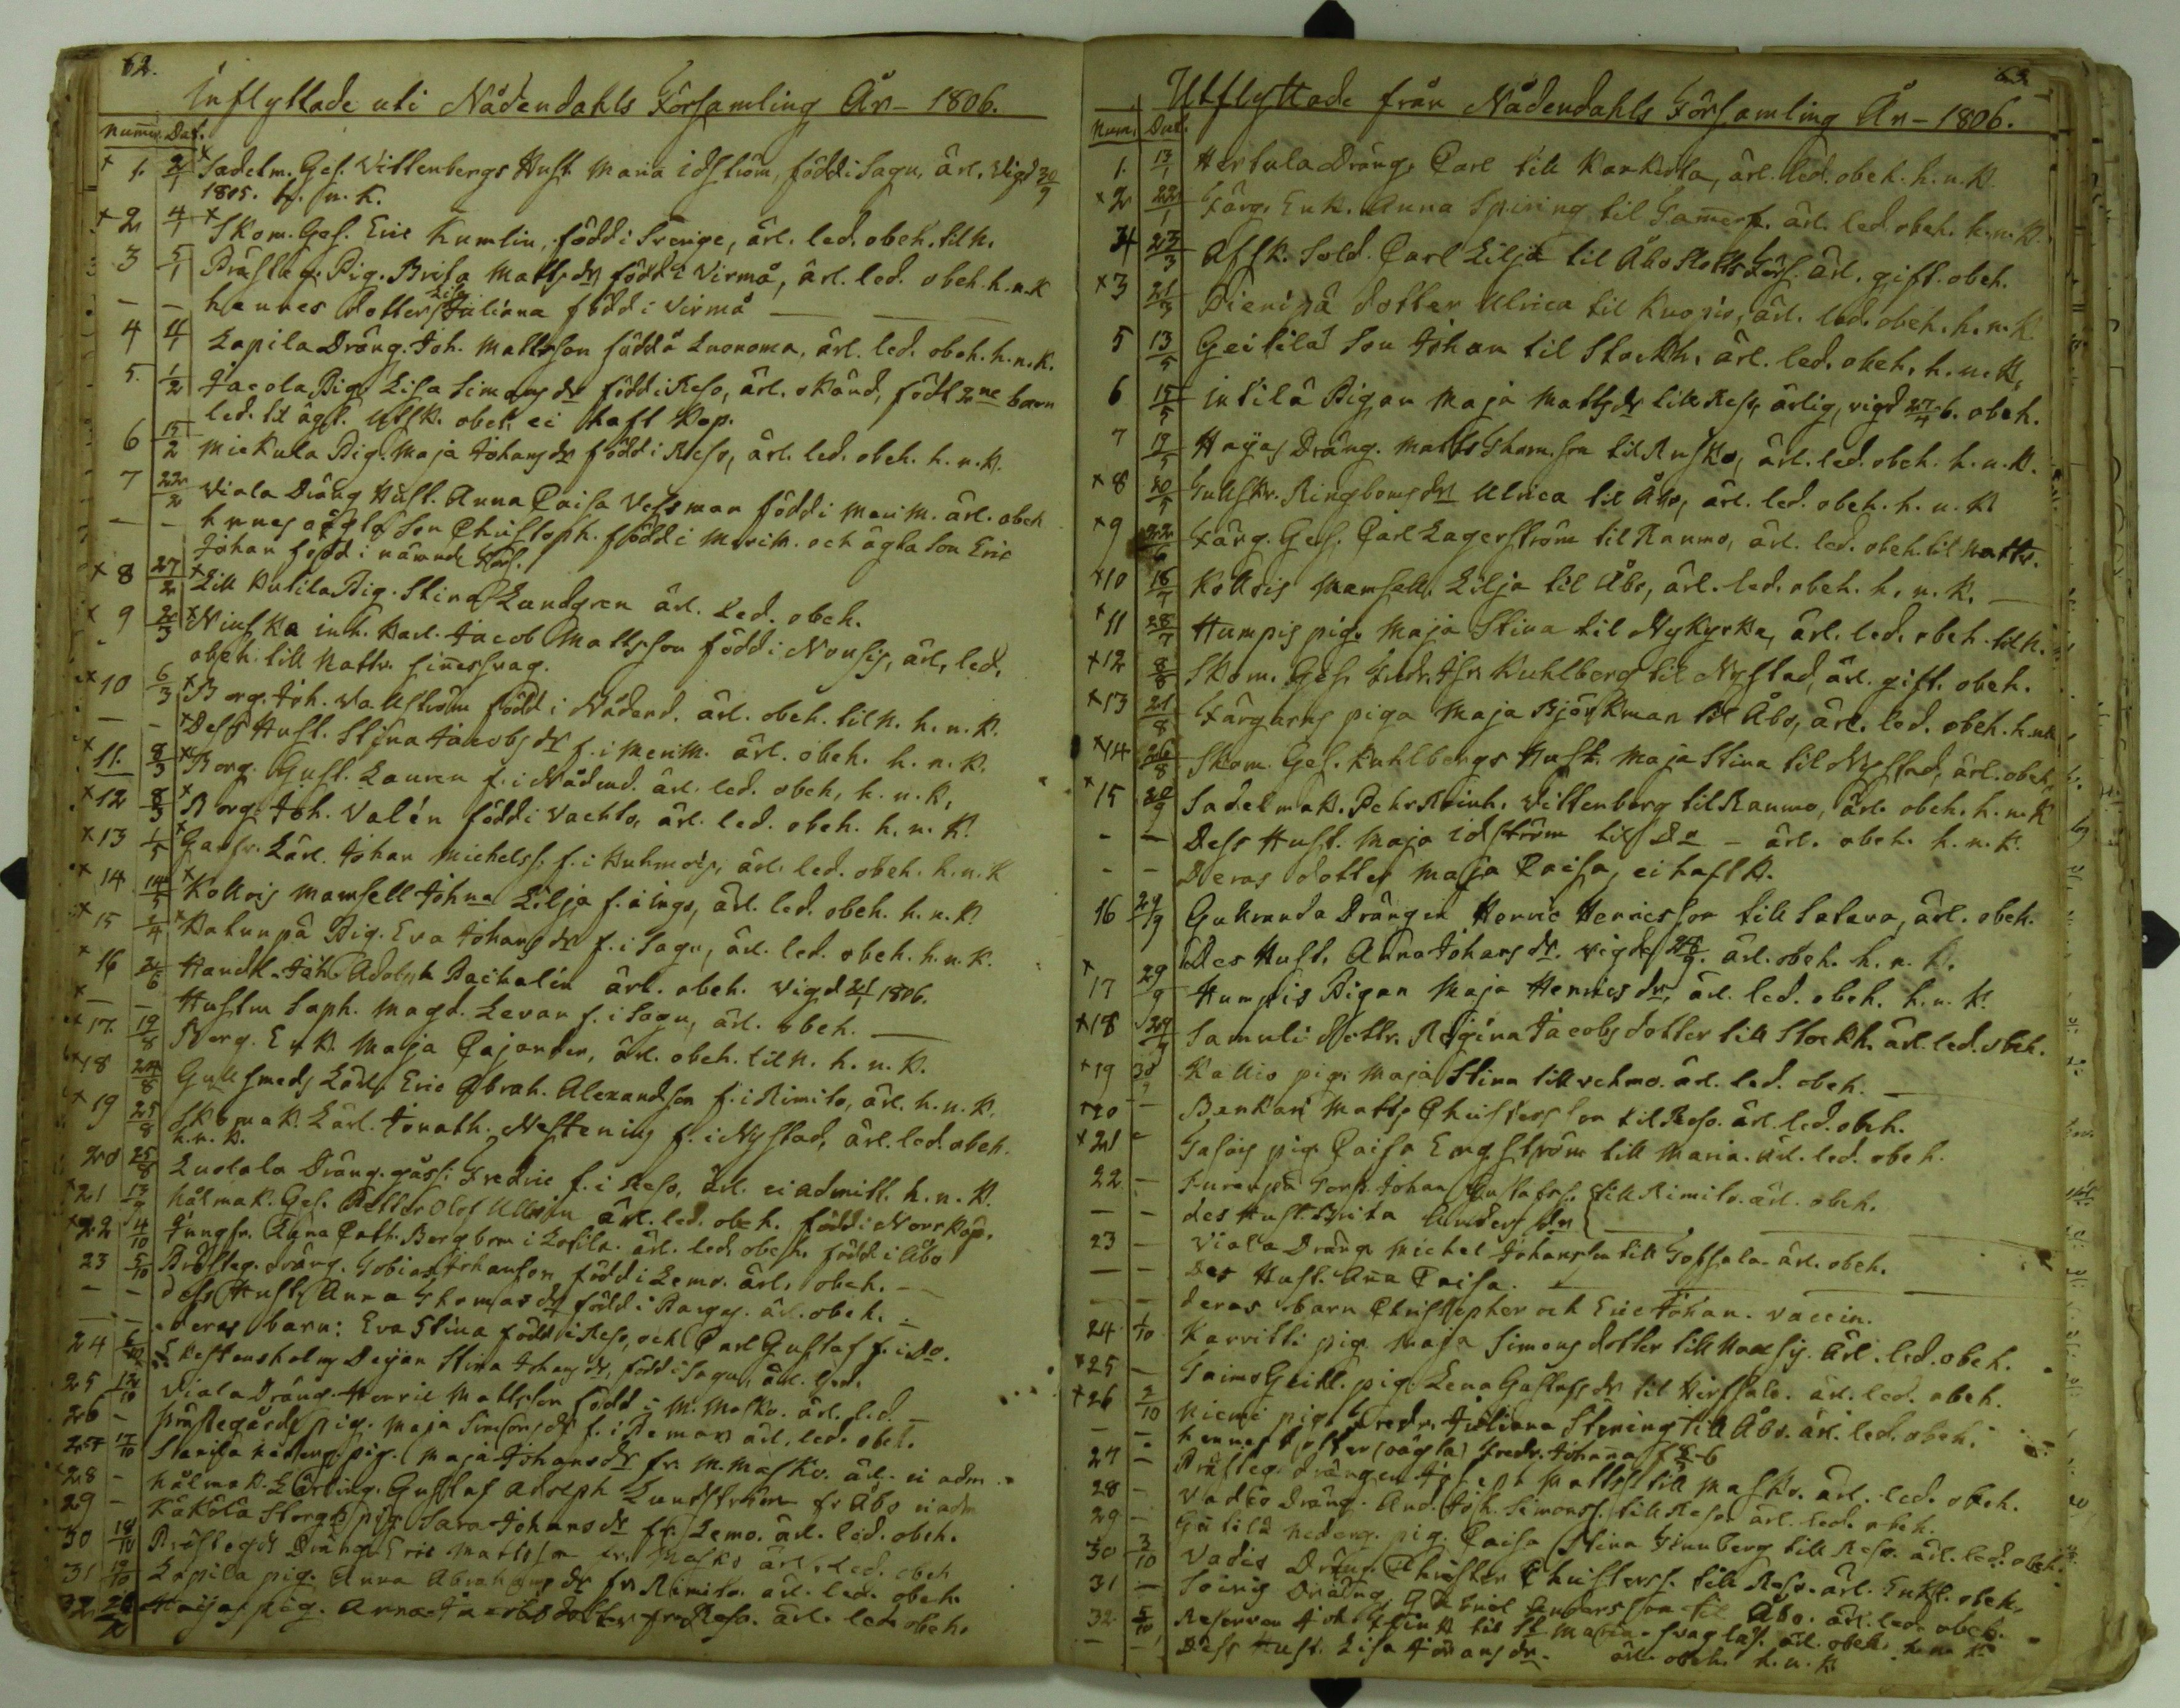 62.
Inflyttade uti Nådendahls Församling År - 1806.
Num. Dat.
× 1. 2/1 × Sadelm. Ges. Vittenbergs Hust. Maria Idström, född i Sagu, ärl. vigd 30/9
1805. h. n. K.
× 2 4/1 × Skom. Ges. Eric Kumlin, född i Sverige, ärl. led. obeh. til N.
3 5/1 Präste g. Pig. Brita Matts dr född i Virmå, ärl. led. obeh. h. n. K
— — hennes dotter Juliana född i Virmå
4 4/1 Lapila Dräng. Joh. Mattsson född å Luonoma, ärl. led. obeh. h. n. K.
5. 1/2 Jacola Pig. Lisa Simons dr född i Reso, ärl. född 2ne barn
led. til ägt. obeh. ei haft Kop.
6 15/2 Mickula Pig. Maja Johans dr född i Reso, ärl. led. obeh. h. n. K.
7 22/2 Viala Dräng Hust. Anna Caisa Vessman född i Merim. ärl. obeh
— — hennes oägta son Christoph. född i Merim. och ägta son Eric
Johan född i nämnde Förs.
× 8 27/2 × Lill Kutila Pig. Stina Lundgren ärl. led. obeh.
× 9 2/3 × inh. Karl. Jacob Mattsson född i Nousis, ärl. led.
obeh. till Nattv. sinessvag.
× 10 6/3 × Borg. Joh. Vallström född i Nådend. ärl. obeh. til N. h. n. K.
— — × Dess Hust. Stina Jacobs dr f. i Merim. ärl. obeh. h. n. K.
× 11. 8/3 × Borg. Gust. Lauren f. i Nådend. ärl. led. obeh. h. n. K.
× 12 8/3 × Borg. Joh. Valén född i Vachto, ärl. led. obeh. h. n. K.
× 13 1/5 × Garfv. Lärl. Johan Michelss. f. i Kuhmois, ärl. led. obeh. h. n. K
× 14 14/5 × Kollois Mamsell Joh:na Lilja f. i Ingo, ärl. led. obeh. h. n. K.
× 15 2/4 × Katunpä Pig. Eva Johans dr f. i Sagu, ärl. led. obeh. h. n. K.
× 16 21/6 Handl. Joh. Adolph Pachalén ärl. obeh. vigd 21/1 1806.
× — — Hustru Soph. Magd. Levan f. i Sagu, ärl. obeh.
× 17. 19/8 Borg. Enk. Maja Cajander, ärl. obeh. til N. h. n. K.
× 18 24/8 Gullsmeds Lärl. Eric Abrah. Alexandsson f. i Rimito, ärl. h. n. K.
× 19 25/8 Skomak. Lärl. Jonath. Nestenius f. i Nystad, ärl. led. obeh.
h. n. K.
20 25/8 Luolala Dräng. gåss. Fredric f. i Reso, ärl. ei admitt. h. n. K.
× 21 13/9 Hålmak. Ges. Petter Olof ärl. led. obeh. född i Norrköp.
× 22 4/10 Jungfr. Anna Cath. Bergbom i ärl. led. obeh. född i Åbo
23 5/10 Präste g. dräng. Tobias Johansson född i Lemo. ärl. obeh.
— — dess Hust. Anna Thomas dr född i Pargas. ärl. obeh.
— — deras barn: Eva Stina född i Reso, och Carl Gustaf f. i Do.
24 6/10 Deijan Stina Johans dr, född i Sagu, ärl. led.
25 12/10 Viala Dräng. Henric Mattsson född i M. Masko. ärl. led.
26 — Prästegårds pig. Maja Simons dr f. i Reman ärl. led. obeh.
27 17/10 pig. Maja Johansdr fr. M. Masko. ärl. ei adm
28 — Hålmak. Lärling. Gustaf Adolph Lundström fr Åbo ei adm
29 — Käkölä pig Sara Johans dr fr. Lemo. ärl. led. obeh.
30 18/10 Prästegds Dräng. Eric Mattsson fr. Masko ärl. led. obeh
31 19/10 Lapila pig. Anna Abrahams dr fr. Rimito. ärl. led. obeh.
32 Haijas pig. Anna Jacobs dotter fr. Reso. ärl. led. obeh.
63
Utflyttade från Nådendahls Församling År - 1806.
Num. Dat.
1. 13/1 Hertula Dräng. Carl till Kankila, ärl. led. obeh. h. n. K
× 2 22/1 Färg. Enk. Anna Spiring til Tamerf. ärl. led. obeh. h. n. K.
4 23/3 Afsk. Sold. Carl Lilja til Åbo Slotts Förs. ärl. gift. obeh.
× 3 21/3 Pienipä dotter Ulrica til Kuopio, ärl. led. obeh. h. n. K
5 13/5 Geitilä Son Johan til Stockh. ärl. led. obeh. h. n. K.
6 15/5 Intilä Pigan Maja Matts dr till Reso, ärlig, vigd 27/4 6. obeh.
7 19/5 Hayas Dräng. Matts Thomson til Rusko, ärl. led. obeh. h. n. K.
× 8 20/5 Tullskr. Ringboms dr Ulrica til Åbo, ärl. led. obeh. h. n. K
× 9 22/6 Färg. Ges. Carl Lagerström til Raumo, ärl. led. obeh. til Nattv.
× 10 16/7 Kollois Mamsell. Lilja til Åbo, ärl. led. obeh. h. n. K. —
× 11 28/7 Humpis pig. Maja Stina til Nykyrka, ärl. led. obeh. til N.
× 12 8/8 Skom. Ges. Fredr. Isr. Kuhlberg til Nystad, ärl. gift. obeh.
× 13 21/8 Färgarns piga Maja Björkman til Åbo, ärl. led. obeh. h. n. K
× 14 26/8 Skom. Ges. Kuhlbergs Hust. Maja Stina til Nystad, ärl. obeh.
× 15 20/9 Sadelmak. Pehr Reinh. Vittenberg til Raumo, ärl. obeh. h. n. K
- — Dess Hust. Maja Idström til Do - ärl. obeh. h. n. K.
- — Deras dotter Maja Caisa, ei haft K.
16 29/9 Gukranda Drängen Henric Henricsson till Satava, ärl. obeh.
Des Hust. Anna Johans dr. vigde 28/9. ärl. obeh. h. n. K.
× 17 29/9 Humpis Pigan Maja Henrics dr, ärl. led. obeh. h. n. K.
× 18 29/9 Samuli Dottr. Regina Jacobs dotter till Stockh. ärl. led. obeh.
× 19 30/9 Kallio pig. Maja Stina till Vehmo. ärl. led. obeh. —
× 20 — Benkari Matts Christersson til Reso. ärl. led. obeh.
× 21 - pig. Caisa Engström till Maria. ärl. led. obeh.
22 — Torp. Johan Gustafss. till Rimito. ärl. obeh.
— — des Hust. Brita Anders dr —
23 — Viala Dräng Michel Johansson till Totsala. ärl. obeh.
— — Des Hust. Anna Caisa. —
— — deras barn Christopher och Eric Johan. vaccin.
24. 1/10 Karvitti pig. Maja Simons dotter till Nousis. ärl. led. obeh.
× 25 — Taimo pig. Lena Gustafs dr til Hirfsalo. ärl. led. obeh.
× 26 2/10 Niemi pig. Fredr. Juliana till Åbo. ärl. led. obeh.
— — hennes dotter (oägta) Fredr. Johanna
27 — Präste g. drängen Joseph Mattss. till Masko. ärl. led. obeh.
28 — Vadio Dräng. And. Joh. Simonss. till Reso. ärl. led. obeh.
29 — Nederg. pig. Caisa Stina till Reso. ärl. led. obeh.
30 3/10 Vadio Dräng. Christer Christerss. till Reso. ärl. Enkl. obeh.
31 — Soinis Dräng. Gabriel Andersson til Åbo. ärl. led. obeh.
32. 5/10 Reserven Joh. til St Maria. ärl. obeh. h. n. K
— — Dess Hust. Lisa Johans dr. ärl. obeh. h. n. K